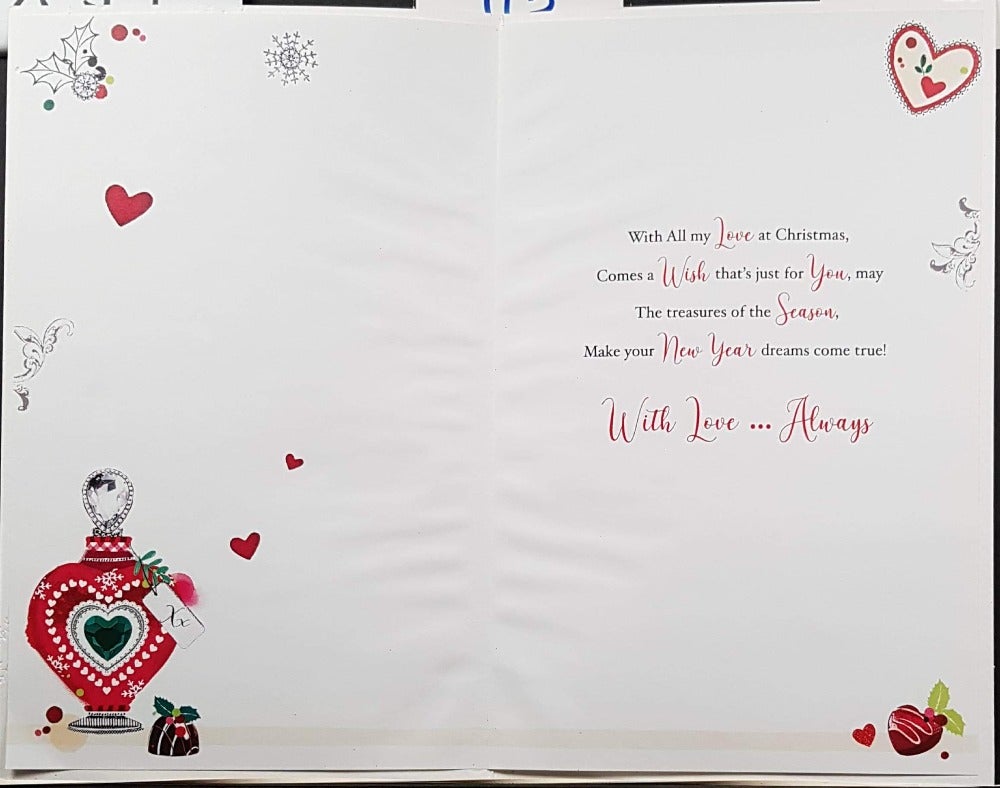 With All my Love at Christmas,
Comes a Wish that's just for You, may
The treasures of the Season,
Make your New Year dreams come true!
With Love ... Always
Xx